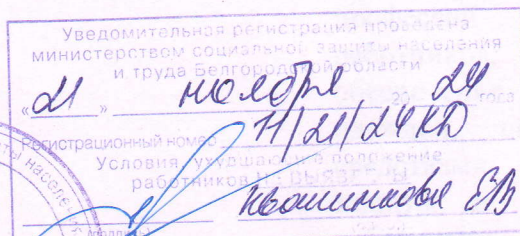 Уведомительная регистрация проведена
министерством социальной защиты населения
и труда Белгородской области
«21» ноября 2024 года
Регистрационный номер 11/21/24КД
Условия, ухудшающие положение
работников не выявлены
ЕВ